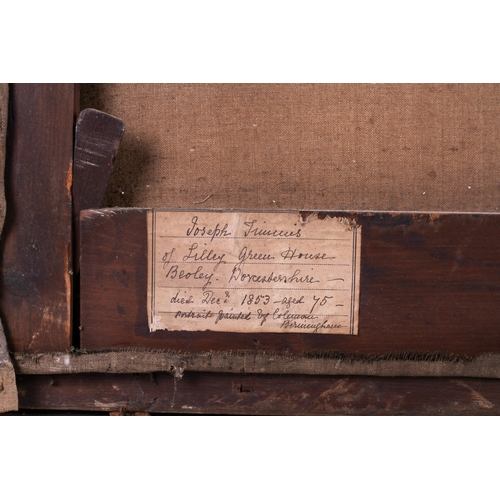 Joseph Timmis
of Lilley Green House
Beoley. Worcestershire —
died Decr. 1853 - aged 75 -
Portrait painted by Coleman
Birmingham